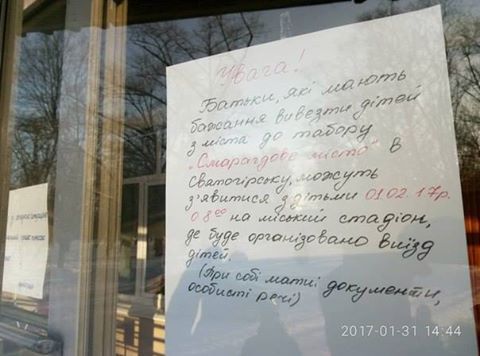 Увага!
Батьки, які мають
бажання вивезти дітей
з міста до табору
„Смарагдове місто" в
Святогірську, можуть
з'явитися з дітьми 01.02.17р.
о 8⁰⁰ на міський стадіон,
де буде організовано виїзд
дітей.
(При собі мати документи,
особисті речі)
2017-01-31 14:44